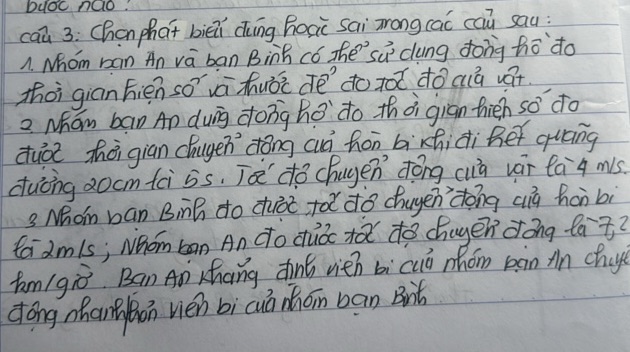 bước nào?
Câu 3: Chọn phát biểu đúng hoặc sai trong các câu sau:
1. Nhóm bạn An và bạn Bình có thể sử dụng đồng hồ đo
thời gian hiện số và thước để đo tốc độ của vật.
2 Nhóm bạn An dùng đồng hồ đo thời gian hiện số đo
được thời gian chuyển động của hòn bi khi đi hết quãng
đường 20cm là 5s. Tốc độ chuyển động của vật là 4 m/s.
3 Nhóm bạn Bình đo được tốc độ chuyển động của hòn bi
là 2m/s; Nhóm bạn An đo được tốc độ chuyển động là 7,2
km/giờ. Bạn An khẳng định viên bi của nhóm bạn An chuyể
động nhanh hơn viên bi của nhóm bạn Bình